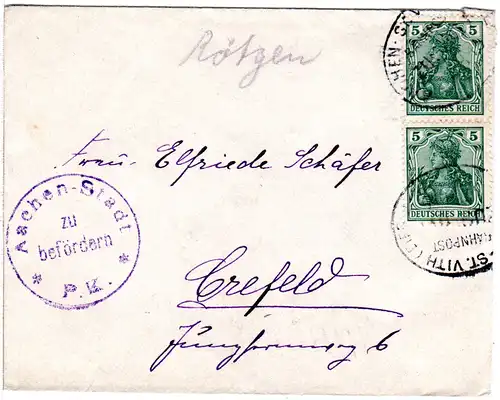 Rötgen
5 5
DEUTSCHES REICH
Frau Elfriede Schäfer
5 5
DEUTSCHES REICH
Aachen-Stadt
zu
befördern
* P.K. *
ST. VITH
BAHNPOST
Crefeld
Jungfernweg 6